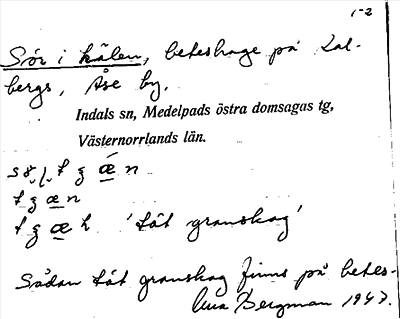 1-2
Sör i kälen, beteshage på Kal-
bergs, Åse by.
Indals sn, Medelpads östra domsagas tg,
Västernorrlands län.
æ n
æ n
æ h 'tät granskog'
Sådan tät granskog finns på betes-
Bergman 1947.